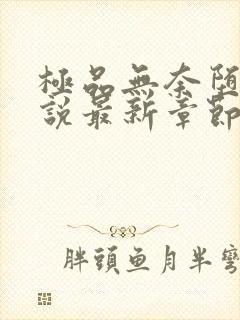 極品無奈堕
說最新章節
胖頭鱼月半彎